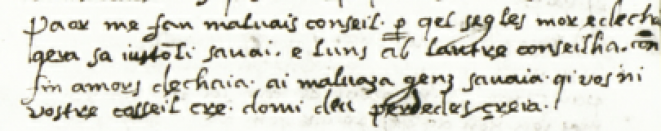 paor me fan maluais conseil. ꝑ qel segles mor e dech
gera sa iustoli sauai. e luns ab lautre conseilha. con
fin amors dechaia. ai maluaza genz sauaia. qi vos ni
vostre cosseil cre. domi deu perdedes creia.